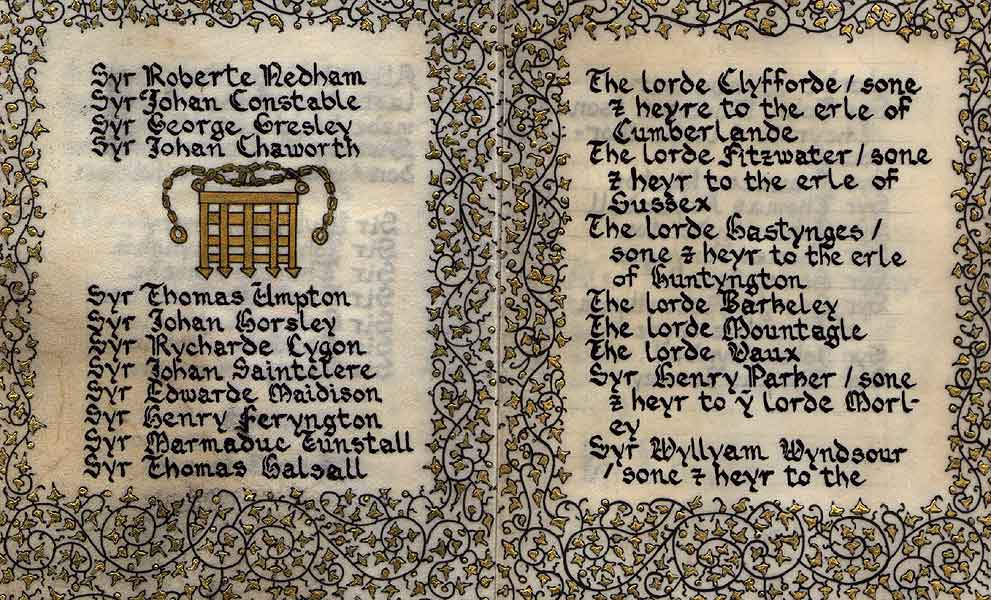 Syr Roberte Nedham
Syr Johan Constable
Syr George Gresley
Syr Johan Chaworth
Syr Thomas Umpton
Syr Johan Horsley
Syr Rycharde Lygon
Syr Johan Saintclere
Syr Edwarde Maidison
Syr Henry Feryngton
Syr Marmaduc Tunstall
Syr Thomas Halsall
The lorde Clyfforde / sone
⁊ heyre to the erle of
Cumberlande
The lorde Fitzwater / sone
⁊ heyr to the erle of
Sussex
The lorde Hastynges /
sone ⁊ heyr to the erle
of Huntyngton
The lorde Barkeley
The lorde Mountagle
The lorde Vaux
Syr Henry Parker / sone
⁊ heyr to ẏ lorde Morl-
ey
Syr Wyllyam Wyndsour
/ sone ⁊ heyr to the